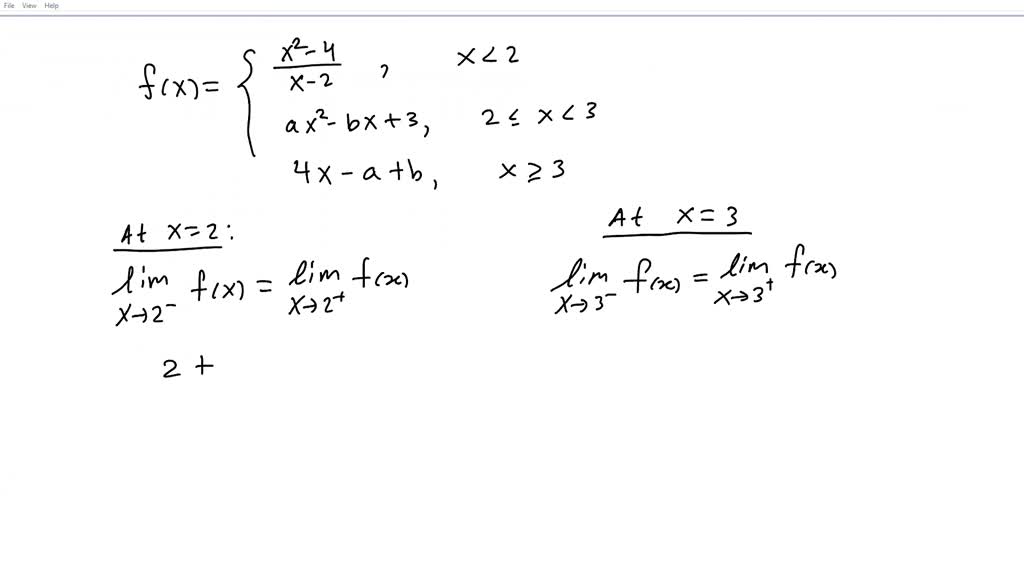 File View Help
f(x) = { (x²-4)/(x-2) , x < 2
ax² - bx + 3, 2 ≤ x < 3
4x - a + b, x ≥ 3
At x = 2:
lim x→2⁻ f(x) = lim x→2⁺ f(x)
2 +
At x = 3
lim x→3⁻ f(x) = lim x→3⁺ f(x)